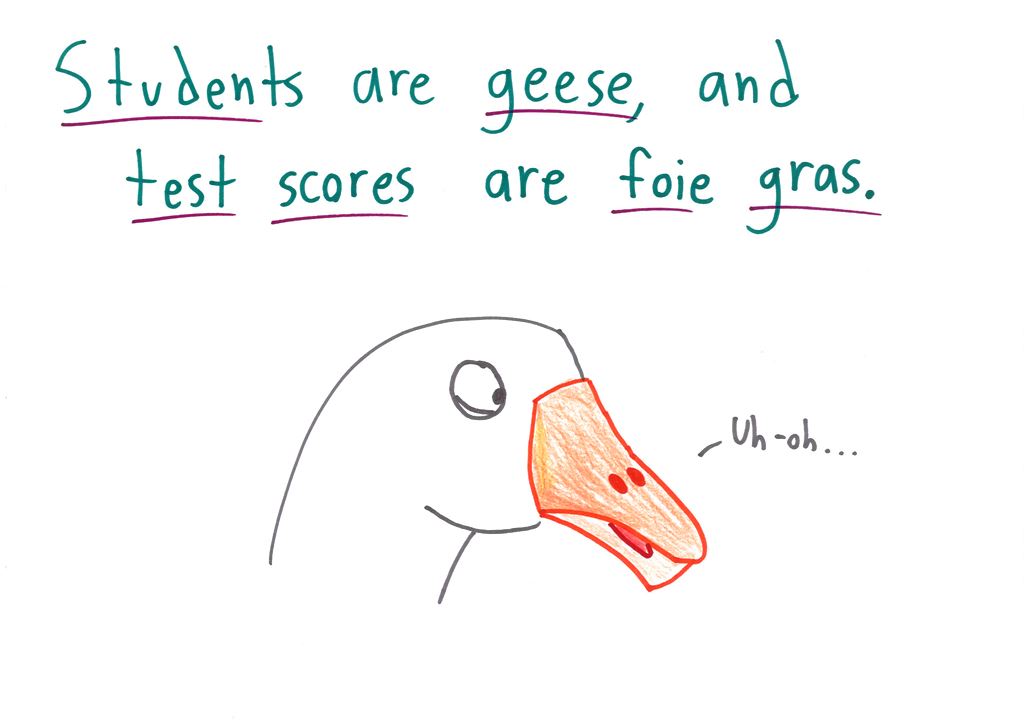 Students are geese, and
test scores are foie gras.
Uh-oh...